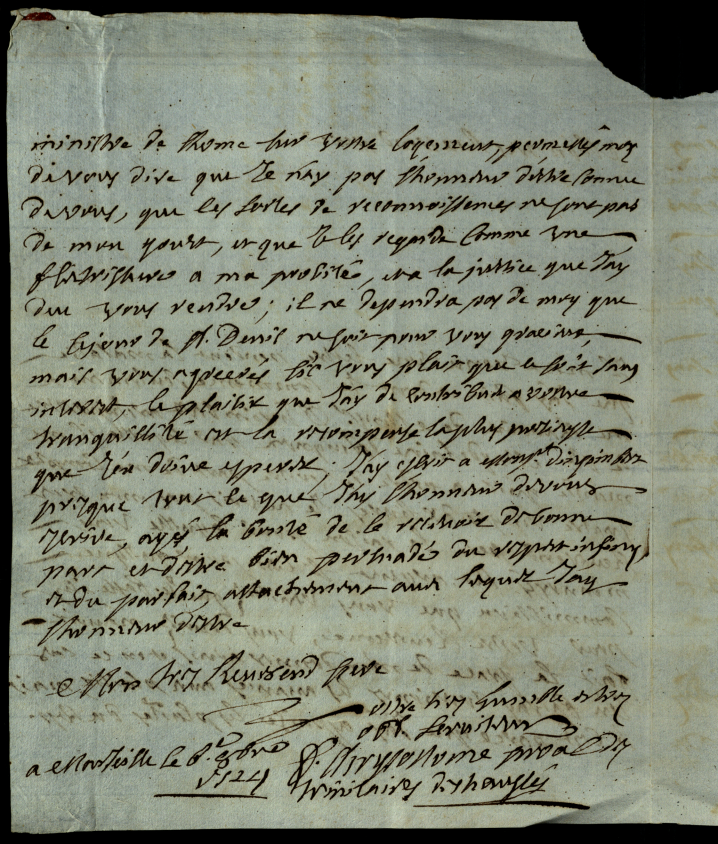 ministre de Rome sur votre logement, permettés moy
de vous dire que Je n'ay pas l'honneur d'estre connu
de vous, que les sortes de reconnoissences ne sont pas
de mon goust, et que Je les regarde comme une
flétrissure a ma probité, et a la justice que J'ay
deu vous rendre; il ne dependra pas de moy que
le sejour de St. Denis ne soit pour vous gracieux,
mais vous agreerés s'il vous plait que ce soit sans
interest, le plaisir que J'ay de contribuer a votre
tranquillité est la recompense la plus
que J'en doive esperer. J'ay escrit a Monsr.
presque tout ce que J'ay l'honneur de vous
ecrire, ayés la bonté de le recevoir de bonne
part et d'etre bien persuadé du respect infiny,
et du parfait attachement avec lequel J'ay
l'honneur d'etre
Mon trez Reverend Pere
votre trez humble et trez
obt. serviteur
a Marseille le 6.e 8bre
1724
f. Chrysostome proal des
trinitaires deschaussés